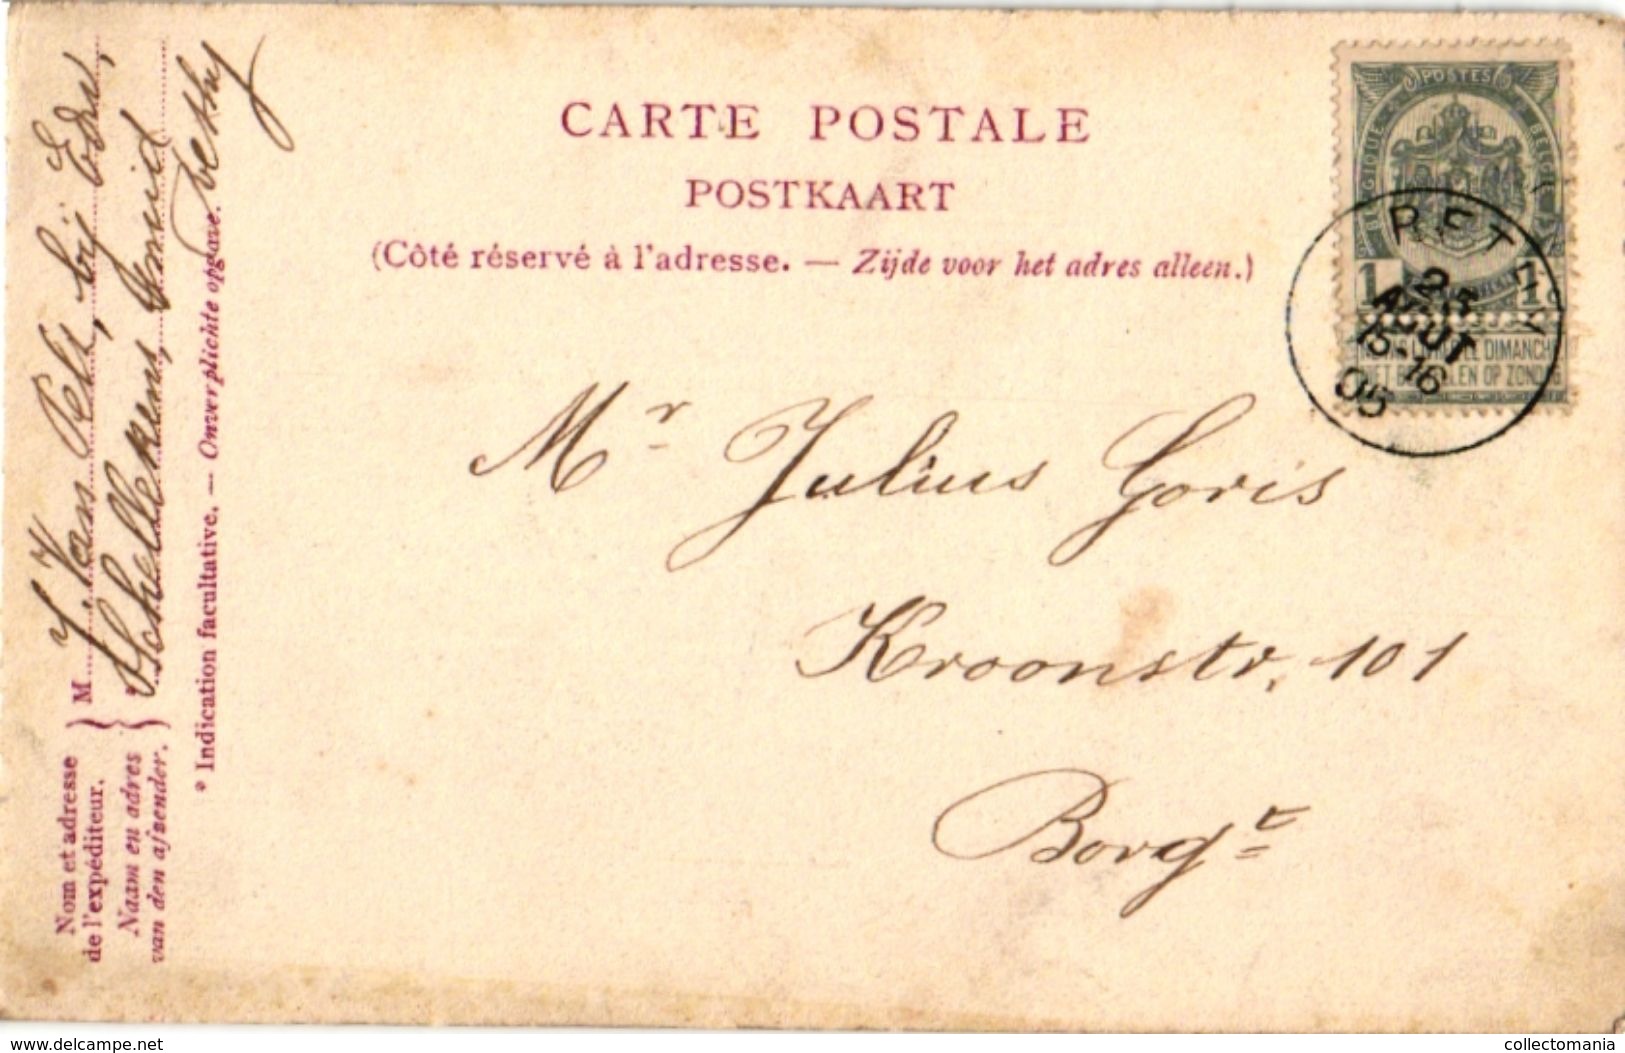 CARTE POSTALE
POSTKAART
(Côté réservé à l'adresse. — Zijde voor het adres alleen.)
POSTES
BELGIQUE
BELGIË
RETHY
AOUT
15-16
05
NE PAS LIVRER LE DIMANCHE
NIET BESTELLEN OP ZONDAG
Mr Julius Goris
Kroonstr, 101
Borgt
Nom et adresse
de l'expéditeur.
Naam en adres
van den afzender.
M. J. Van Pelt, bij Edw,
Schellekens, Smid
Rethy
* Indication facultative. — Onverplichte opgave.
delcampe.net
collectomania